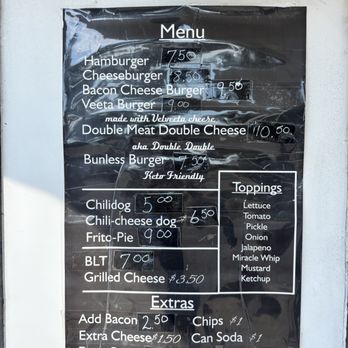 Menu
Hamburger 7.50
Cheeseburger 8.50
Bacon Cheese Burger 9.50
Veeta Burger 9.00
made with Velveeta cheese
Double Meat Double Cheese 10.50
aka Double Double
Bunless Burger 7.50
Keto Friendly
Chilidog 5.00
Chili-cheese dog 6.50
Frito-Pie 9.00
BLT 7.00
Grilled Cheese $3.50
Toppings
Lettuce
Tomato
Pickle
Onion
Jalapeno
Miracle Whip
Mustard
Ketchup
Extras
Add Bacon 2.50 Chips $1
Extra Cheese $1.50 Can Soda $1